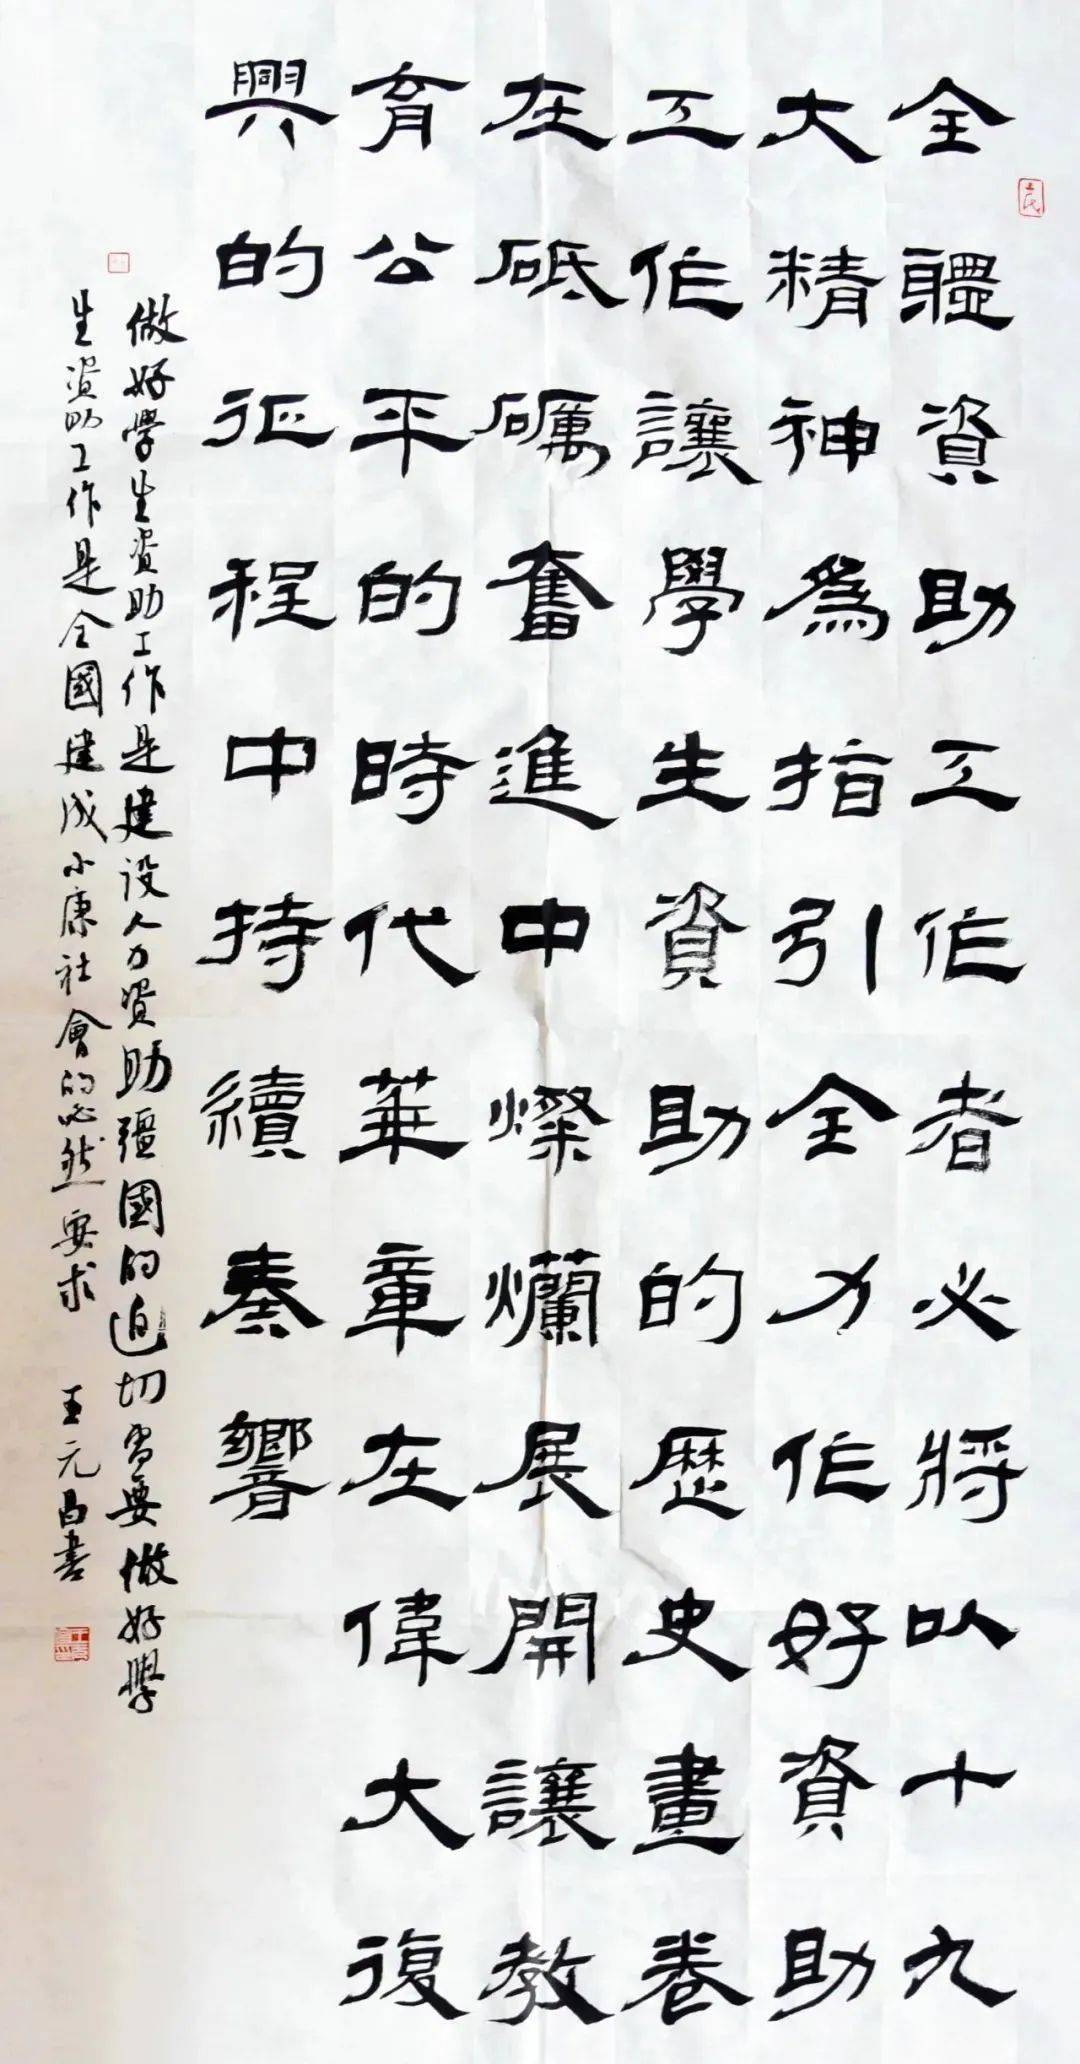 全軆資助工作者必將以十九
大精神為指引全力作好資助
工作讓學生資助的歷史畫卷
在砥礪奮進中燦爛展開讓教
育公平的時代華章在偉大復
興的征程中持續奏響
做好學生資助工作是建设人力資助疆國的迫切需要做好學
生資助工作是全國建成小康社會的必然要求 王元昌書